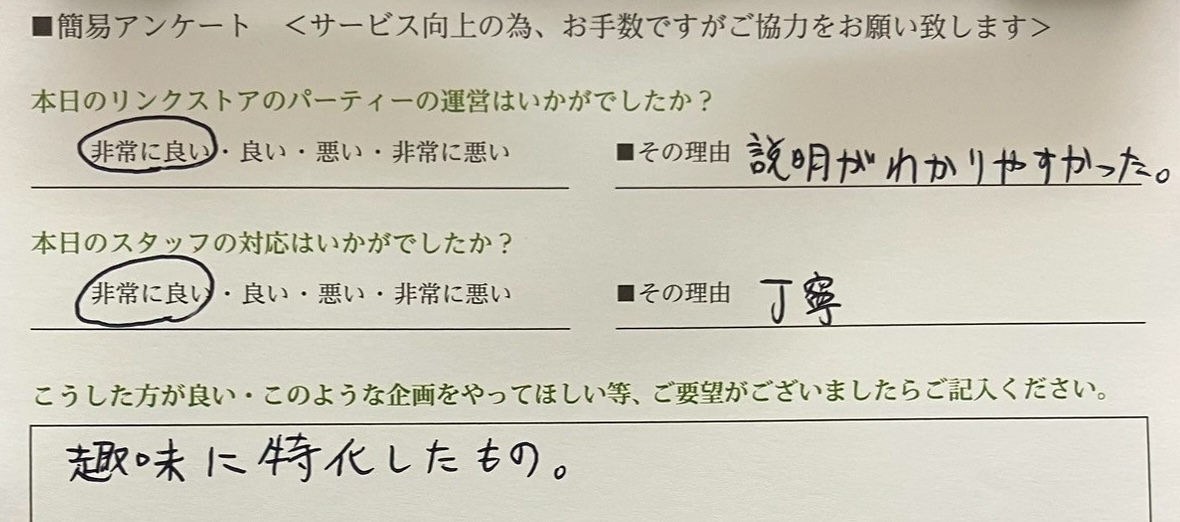 ■簡易アンケート ＜サービス向上の為、お手数ですがご協力をお願い致します＞
本日のリンクストアのパーティーの運営はいかがでしたか？
非常に良い・良い・悪い・非常に悪い ■その理由 説明がわかりやすかった。
本日のスタッフの対応はいかがでしたか？
非常に良い・良い・悪い・非常に悪い ■その理由 丁寧
こうした方が良い・このような企画をやってほしい等、ご要望がございましたらご記入ください。
趣味に特化したもの。